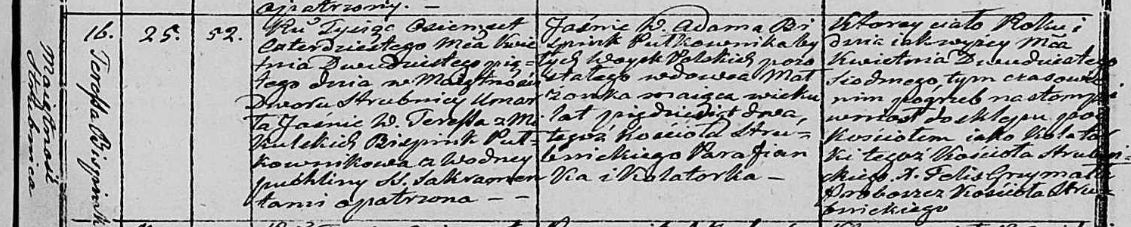 opatrzony. —
Majętność
Strubnica
16.
Teressa Bispink
25.
52.
Rku Tysiąc Osiemset
Czterdziestego Mca Kwie
tnia Dwudziestego pią-
tego dnia w Majętności
Dworu Strubnicy Umar
ła Jaśnie W. Teressa z Mi
kulskich Bispink Puł-
kownikowa a Wodney
puchliny SS. Sakramen
tami opatrzona — —
Jaśnie W. Adama Bi
spink Pułkownika by
łych Woysk Polskich pozo
stałego wdowca Mał
żonka maiąca wieku
lat pięćdziesiąt dwa,
tegoż Kościoła Stru-
bnickiego Parafian
ka i Kolatorka —
Ktorey ciało Roku i
dnia iak wyżey Mca
Kwietnia Dwudziestego
Siodmego, tym czasowie
nim pogrzeb nastąmpi
wniosł do sklepu pod
Kosciołem iako Kolator
ki tegoż Kościoła Strubni-
ckiego X. Felix Grzymała
Proboszcz Kościoła Stru-
bnickiego